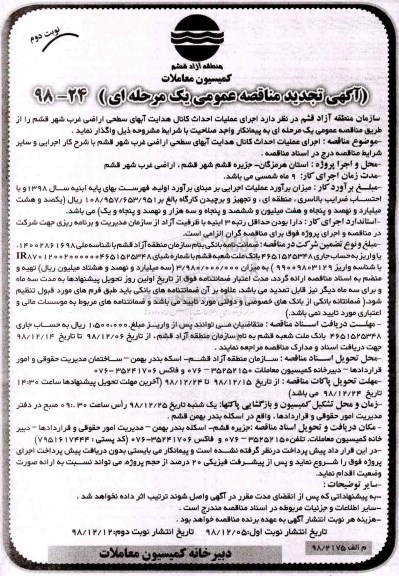 نوبت دوم
منطقه آزاد قشم
کمیسیون معاملات
(آگهی تجدید مناقصه عمومی یک مرحله ای) ۲۴-۹۸
سازمان منطقه آزاد قشم در نظر دارد اجرای عملیات احداث کانال هدایت آبهای سطحی اراضی غرب شهر قشم را از
طریق مناقصه عمومی یک مرحله ای به پیمانکار واجد صلاحیت با شرایط مشروحه ذیل واگذار نماید .
-موضوع مناقصه : اجرای عملیات احداث کانال هدایت آبهای سطحی اراضی غرب شهر قشم با شرح کار اجرایی و سایر
شرایط مناقصه درج در اسناد مناقصه .
-محل و اجرا پروژه : استان هرمزگان- جزیره قشم شهر قشم ، اراضی غرب شهر قشم
-مدت زمان اجرای کار: ۹ ماه شمسی می باشد.
-مبلـغ برآورد کار : میزان برآورد عملیات اجرایی بر مبنای برآورد اولیه فهرست بهای پایه ابنیه سال ۱۳۹۸ و با
احتساب ضرایب بالاسری ، منطقه ای ، و تجهیز و برچیدن کارگاه بالغ بر ۱۰۸/۹۵۷/۶۵۳/۹۵۱ ریال (یکصد و هشت
میلیارد و نهصد و پنجاه و هفت میلیون و ششصد و پنجاه و سه هزار و نهصد و پنجاه و یک) می باشد.
-استاندارد اجرای کار : دارا بودن حداقل رتبه ۳ ابنیه با ظرفیت آزاد از سازمان مدیریت و برنامه ریزی جهت شرکت
در مناقصه و اجرای پروژه فوق برای مناقصه گران الزامی است.
-مبلغ و نوع تضمین شرکت در مناقصه : ضمانت نامه بانکی بنام سازمان منطقه آزاد قشم با شناسه ملی ۱۴۰۰۲۸۶۱۶۹۸،
منضم به اسناد مناقصه ارائه گردد، مدت اعتبار ضمانتنامه فوق از تاریخ اولین روز تحویل پیشنهادها به مدت سه ماه
و برای سه ماه دیگر نیز قابل تمدید می باشد، علاوه بر آن ضمانتنامه های بانکی باید طبق فرم های مورد قبول تنظیم
شود.( ضمانتنامه بانکی از بانک های خصوصی و دولتی مورد تایید می باشد و ضمانتنامه های مربوط به موسسات مالی و
اعتباری مورد تایید نمی باشد.)
- مهلت دریافت اسناد مناقصه : متقاضیان می توانند پس از واریـز مبلغ ۱،۵۰۰،۰۰۰ ریال به حساب جاری
۴۶۵۱۵۲۵۳۴۸ بانک ملت شعبه قشم به نام سازمان منطقه آزاد قشم ، از تاریخ ۹۸/۱۲/۰۶ تا تاریخ ۹۸/۱۲/۱۴
جهت دریافت اسناد و مدارک مناقصه مراجعه نمایند .
-محل تحویل اسناد مناقصه : سازمان منطقه آزاد قشم– اسکله بندر بهمن – ساختمان مدیریت حقوقی و امور
قراردادها – دبیرخانه کمیسیون معاملات ۳۵۲۵۲۱۵۰ – ۰۷۶ و فاکس ۳۵۲۴۱۷۰۶-۰۷۶
-مهلت تحویل پاکات مناقصه : از تاریخ ۹۸/۱۲/۱۵ تا ۹۸/۱۲/۲۴ (آخرین مهلت تحویل پیشنهادها ساعت ۱۴:۳۰
تاریخ ۹۸/۱۲/۲۴ می باشد)
-زمان و محل تشکیل کمیسیون و بازگشایی پاکتها: یک شنبه تاریخ ۹۸/۱۲/۲۵ رأس ساعت ۰۹:۳۰ صبح در دفتر
مدیریت امور حقوقی و قراردادها، واقع در اسکله بندر بهمن قشم .
- مکان دریافت و تحویل اسناد مناقصه :جزیره قشم- اسکله بندر بهمن – مدیریت امور حقوقی و قراردادها – دبیر
خانه کمیسیون معاملات، تلفن ۳۵۲۵۲۱۵۰-۰۷۶ و فاکس ۳۵۲۴۱۷۰۶-۰۷۶ (کد پستی : ۷۹۵۱۶۱۷۴۴۴)
-در این قرار داد پیش پرداخت درنظر گرفته نشده است و پیمانکار می بایستی بدون دریافت پیش پرداخت اجرای
پروژه فوق را شروع نماید و پس از پیشـرفت فیزیکی ۲۰ درصد از حجم پروژه، می تواند نسبت به ارائه صورت
وضعیت اقدام نماید.
-سایر توضیحات :
-به پیشنهاداتی که پس از انقضای مدت مقرر در آگهی واصل شوند ترتیب اثر داده نخواهد شد .
-سایر اطلاعات و جزئیات مربوطه در اسناد مناقصه مندرج است .
-هزینه هر نوبت انتشار آگهی به عهده برنده مناقصه خواهد بود .
تاریخ انتشار نوبت اول:۹۸/۱۲/۰۵ تاریخ انتشار نوبت دوم: ۹۸/۱۲/۱۲
م الف ۹۸/۲۱۷۵
دبیرخانه کمیسیون معاملات